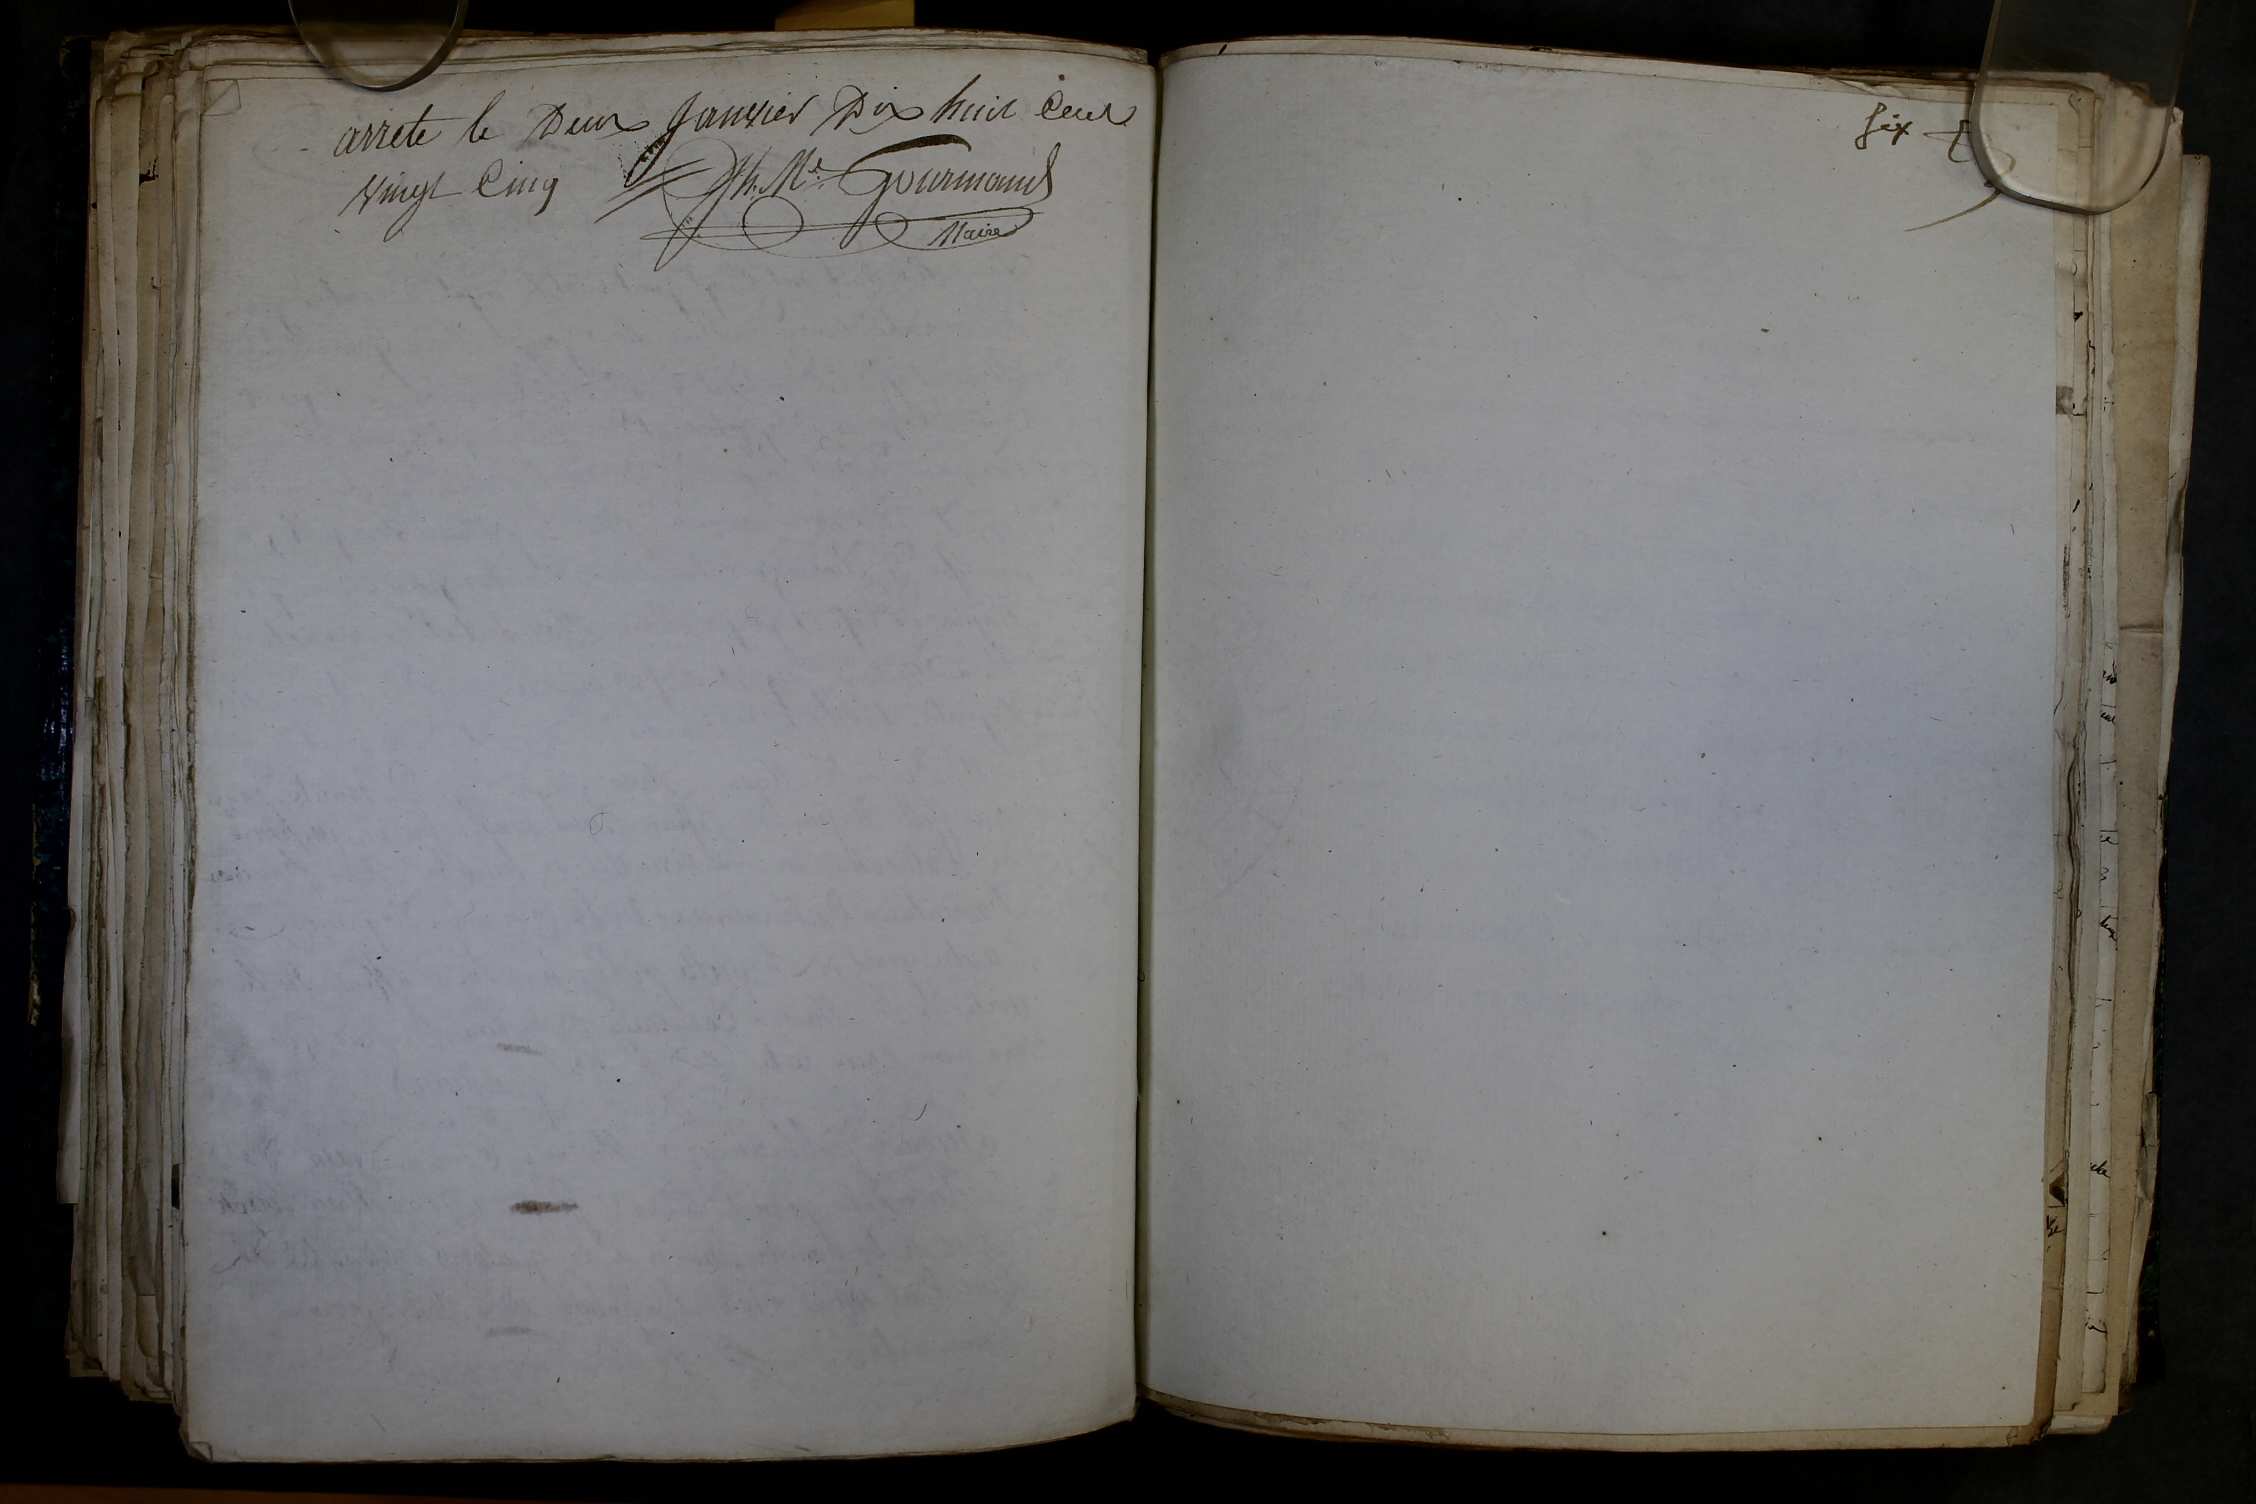 arrete le Deux Janvier Dix huit Cent
vingt Cinq Jh. Me. Gourmand
Maire
Six